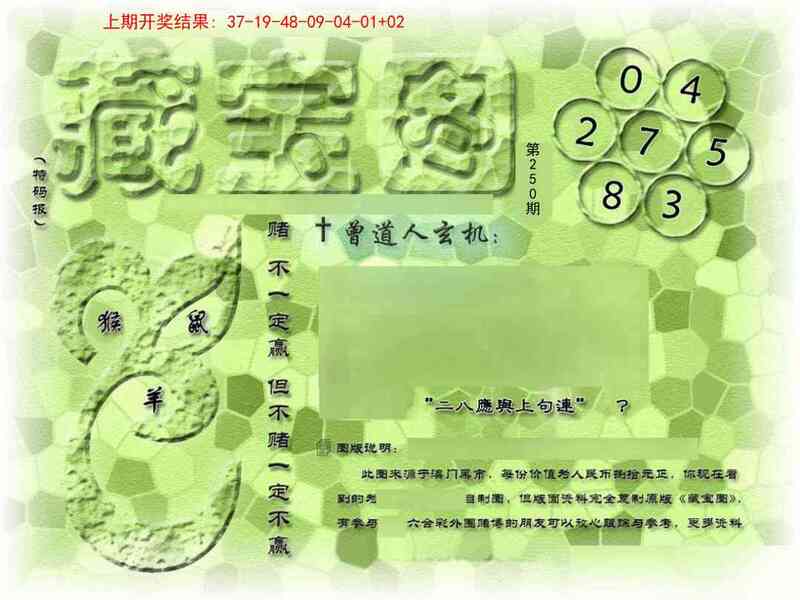 上期开奖结果: 37-19-48-09-04-01+02
藏宝图
（特码报）
第250期
0 4
2 7 5
8 3
猴 鼠
羊
赌不一定赢但不赌一定不赢
✝曾道人玄机:
"二八應與上句連" ?
图版说明:
此图来源于澳门黑市，每份价值为人民币捌拾元正，你现在看
到的为 自制图，但版面资料完全复制原版《藏宝图》，
有参与 六合彩外围赌博的朋友可以放心跟踪与参考，更多资料